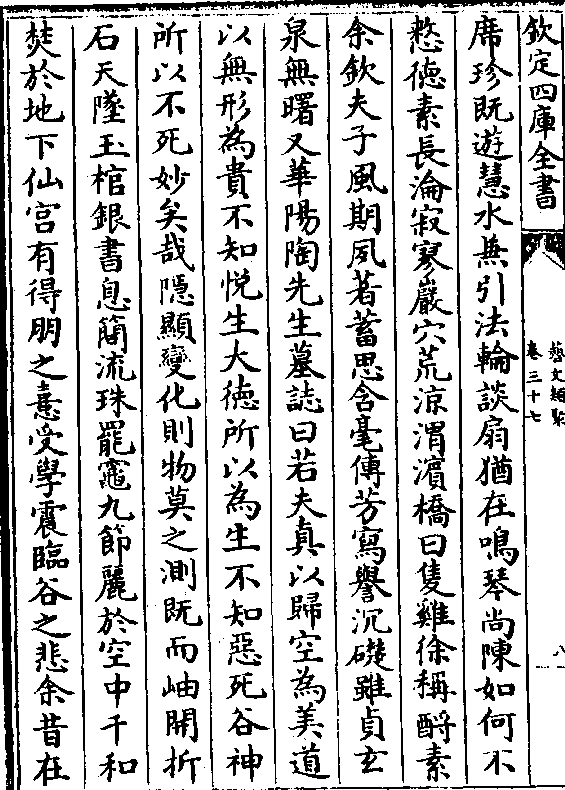 欽定四庫全書
藝文類聚
卷三十七
八
席珍既遊慧水無引法輪談扇猶在鳴琴尚陳如何不
憗徳素長淪寂寥巖穴荒涼渭濱橋曰隻雞徐稱酹素
余欽夫子風期夙著蓄思含毫傳芳寫譽沉礎雖貞玄
泉無曙又華陽陶先生墓誌曰若夫真以歸空為美道
以無形為貴不知悦生大徳所以為生不知惡死谷神
所以不死妙矣哉隱顯變化則物莫之測既而岫開折
石天墜玉棺銀書息簡流珠罷竈九節麗於空中千和
焚於地下仙宫有得朋之憙受學震臨谷之悲余昔在